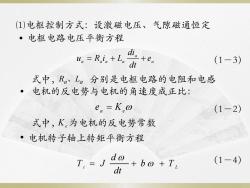 (1)电枢控制方式：设激磁电压、气隙磁通恒定
• 电枢电路电压平衡方程
u_a = R_a i_a + L_a di_a/dt + e_a (1－3)
式中，R_a、L_a 分别是电枢电路的电阻和电感
• 电机的反电势与电机的角速度成正比：
e_a = K_e ω (1－2)
式中，K_e 为电机的反电势常数
• 电动机转子轴上转矩平衡方程
T_i = J dω/dt + b ω + T_L (1－4)